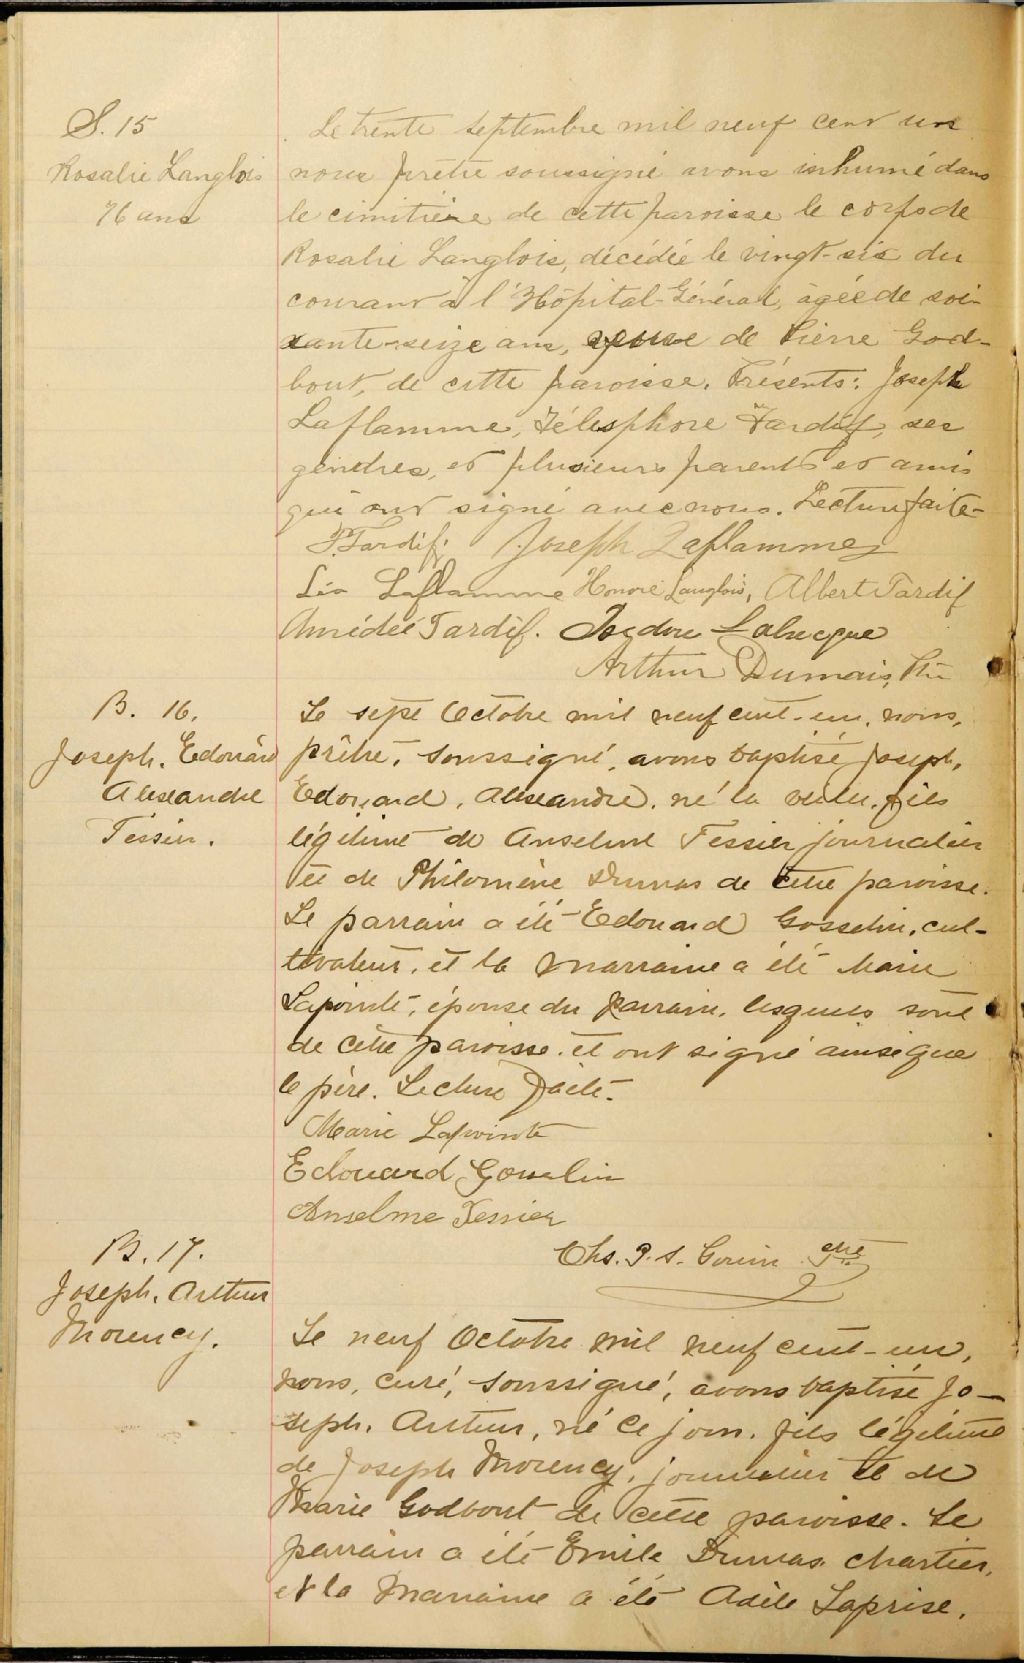 S. 15
Rosalie Langlois
76 ans
Le trente septembre mil neuf cent un
nous prêtre soussigné avons inhumé dans
le cimitière de cette paroisse le corps de
Rosalie Langlois, décédée le vingt-six du
courant à l'Hôpital-Général, âgée de soi-
xante-seize ans, épouse de Pierre God-
bout, de cette paroisse. Présents: Joseph
Laflamme, Télesphore Tardif, ses
gendres, et plusieurs parents et amis
qui ont signé avec nous. Lecture faite-
T. Tardif. Joseph Laflamme
Léa Laflamme Honoré Langlois, Albert Tardif
Amédée Tardif. Isidore Labrecque
Arthur Dumais, Ptre
B. 16.
Joseph, Edouard
Alexandre
Tessier.
Le sept Octobre mil neuf cent-un, nous,
prêtre, soussigné, avons baptisé Joseph,
Edouard, Alexandre, né la veille, fils
légitime de Anselme Tessier journalier
et de Philomène Dumas de cette paroisse.
Le parrain a été Edouard Gosselin, cul-
tivateur, et la marraine a été Marie
Lapointe, épouse du parrain, lesquels sont
de cette paroisse et ont signé ainsi que
le père. Lecture faite.
Marie Lapointe
Edouard Gosselin
Anselme Tessier
Chs. P. S. Gouin Ptre
B. 17.
Joseph, Arthur
Morency.
Le neuf Octobre mil neuf cent-un,
nous, curé, soussigné, avons baptisé Jo-
seph, Arthur, né ce jour, fils légitime
de Joseph Morency, journalier et de
Marie Godbout de cette paroisse. Le
parrain a été Emile Dumas charretier,
et la marraine a été Adèle Laprise,